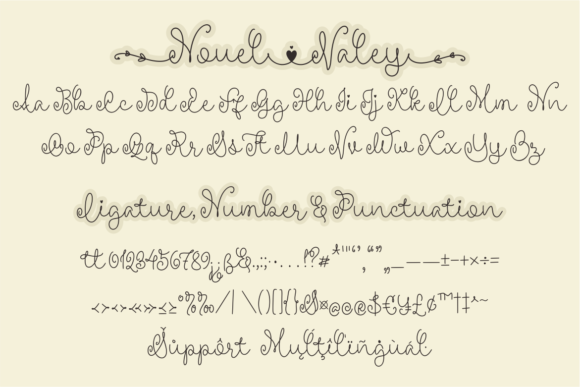 Novel Valey
Aa Bb Cc Dd Ee Ff Gg Hh Ii Jj Kk Ll Mm Nn
Oo Pp Qq Rr Ss Tt Uu Vv Ww Xx Yy Zz
Ligature, Number & Punctuation
tt 0123456789¡¿ß&.,:;·•...!?#*"'“‘’ “” ‚ „_—–±-+×÷=
<>‹›«»≤≥°%‰/|\()[]{}§¤©®@$€¥£¢™†‡^~
Support Multilingual